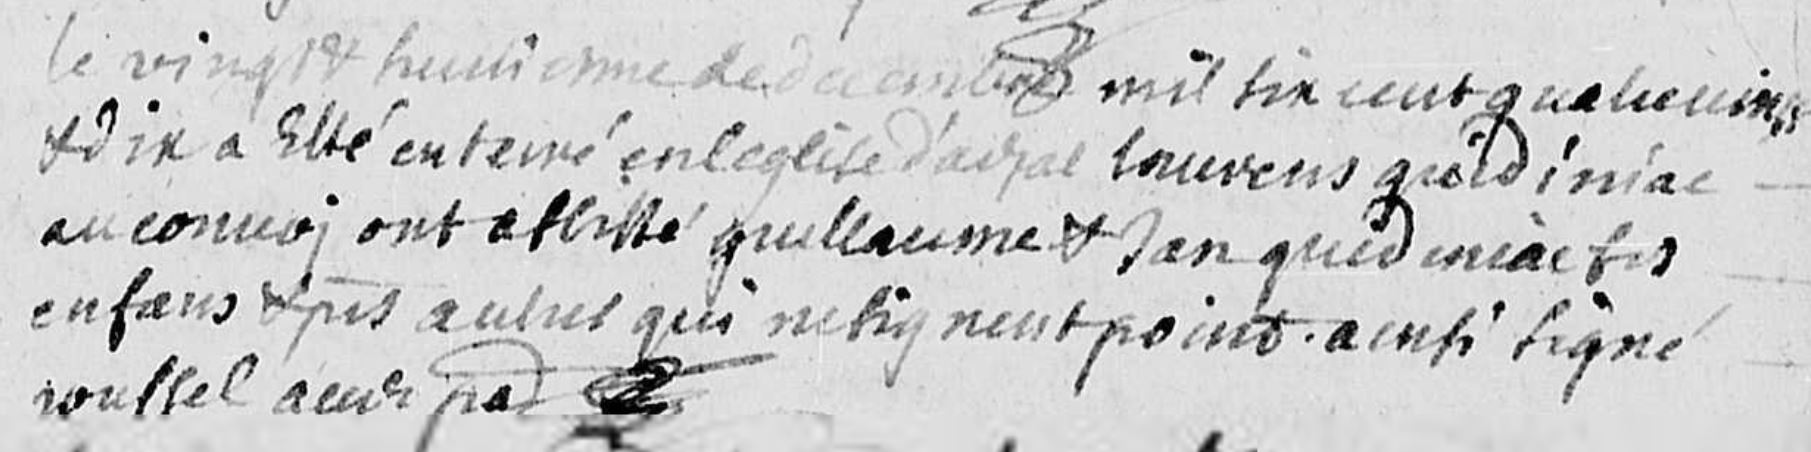 le vingt & huitieme de decembre mil six cent quatrevingt
& dix a Esté enterré en leglise d'aizac laurens guidiniac
au convoj ont assisté guillaume & Jan guidiniac ses
enfans & pls autres qui ne signent point. ainsi signé
roussel